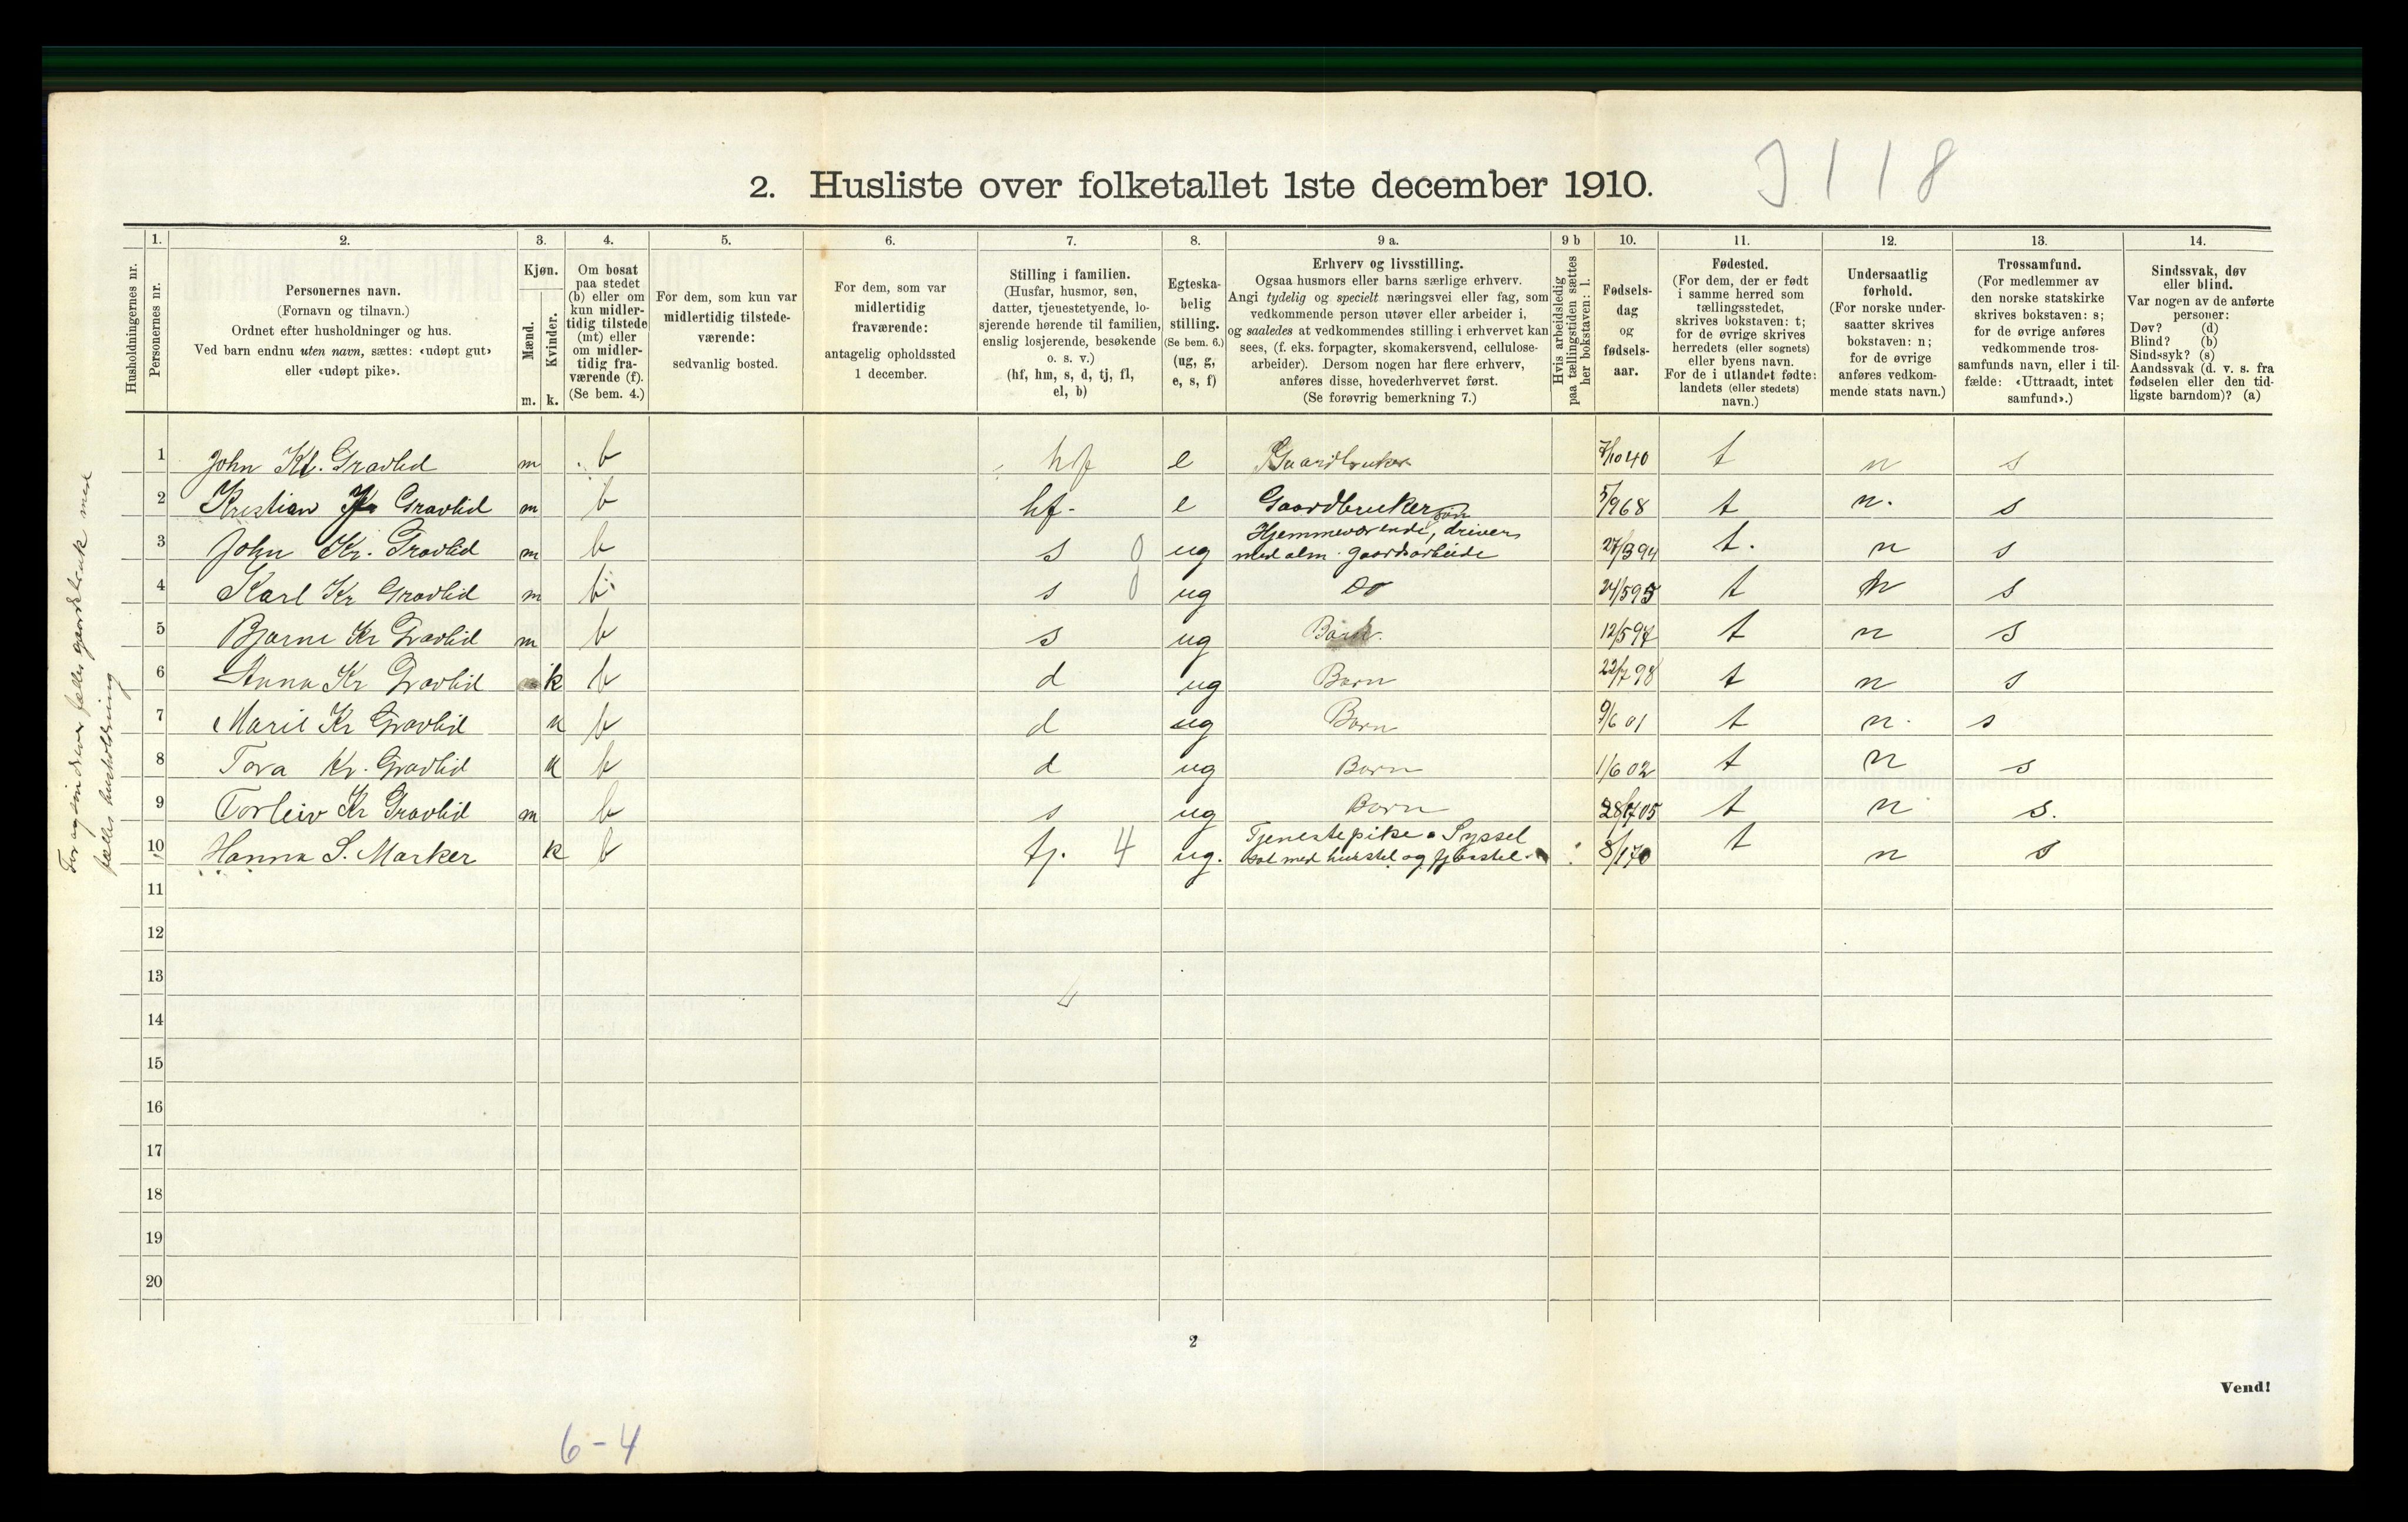 J 118
2. Husliste over folketallet 1ste december 1910.
Husholdningernes nr.
1.
Personernes nr.
2.
Personernes navn.
(Fornavn og tilnavn.)
Ordnet efter husholdninger og hus.
Ved barn endnu uten navn, sættes: «udøpt gut»
eller «udøpt pike».
3.
Kjøn.
Mænd.
Kvinder.
m. k.
4.
Om bosat
paa stedet
(b) eller om
kun midler-
tidig tilstede
(mt) eller
om midler-
tidig fra-
værende (f).
(Se bem. 4.)
5.
For dem, som kun var
midlertidig tilstede-
værende:
sedvanlig bosted.
6.
For dem, som var
midlertidig
fraværende:
antagelig opholdssted
1 december.
7.
Stilling i familien.
(Husfar, husmor, søn,
datter, tjenestetyende, lo-
sjerende hørende til familien,
enslig losjerende, besøkende
o. s. v.)
(hf, hm, s, d, tj, fl,
el, b)
8.
Egteska-
belig
stilling.
(Se bem. 6.)
(ug, g,
e, s, f)
9 a.
Erhverv og livsstilling.
Ogsaa husmors eller barns særlige erhverv.
Angi tydelig og specielt næringsvei eller fag, som
vedkommende person utøver eller arbeider i,
og saaledes at vedkommendes stilling i erhvervet kan
sees, (f. eks. forpagter, skomakersvend, cellulose-
arbeider). Dersom nogen har flere erhverv,
anføres disse, hovederhvervet først.
(Se forøvrig bemerkning 7.)
9 b
Hvis arbeidsledig
paa tællingstiden sættes
her bokstaven: l.
10.
Fødsels-
dag
og
fødsels-
aar.
11.
Fødested.
(For dem, der er født
i samme herred som
tællingsstedet,
skrives bokstaven: t;
for de øvrige skrives
herredets (eller sognets)
eller byens navn.
For de i utlandet fødte:
landets (eller stedets)
navn.)
12.
Undersaatlig
forhold.
(For norske under-
saatter skrives
bokstaven: n;
for de øvrige
anføres vedkom-
mende stats navn.)
13.
Trossamfund.
(For medlemmer av
den norske statskirke
skrives bokstaven: s;
for de øvrige anføres
vedkommende tros-
samfunds navn, eller i til-
fælde: «Uttraadt, intet
samfund».)
14.
Sindssvak, døv
eller blind.
Var nogen av de anførte
personer:
Døv? (d)
Blind? (b)
Sindssyk? (s)
Aandssvak (d. v. s. fra
fødselen eller den tid-
ligste barndom)? (a)
1 John Kl. Gravlid m b hf e Gaardbruker 7/10 40 t n s
2 Kristian Gravlid m b hf- e Gaardbruker søn 5/9 68 t n. s
3 John Kr. Gravlid m b s 0 ug Hjemmeværende, driver
med alm. gaardsarbeide 27/3 94 t. n s
4 Karl Kr Gravlid m b s 0 ug Do 24/5 95 t n s
5 Bjarne Kr Gravlid m b s ug Barn. 12/5 97 t n s
6 Anna Kr Gravlid k b d ug Barn 22/7 98 t n s
7 Marie Kr Gravlid k b d ug Barn 9/6 01 t n. s
8 Tora Kr. Gravlid k b d ug Barn 1/6 02 t n s
9 Torleiv Kr Gravlid m b s ug Barn 28/7 05 t n s.
10 Hanna S. Marker k b tj. 4 ug. Tjenestepike. Syssel
sat med husstel og fjøsstel. 8/1 70 t n s
11
12
13
4
14
15
16
17
18
19
20
Far og søn driver fælles gaardsbruk med
fælles husholdning
2
Vend!
6-4